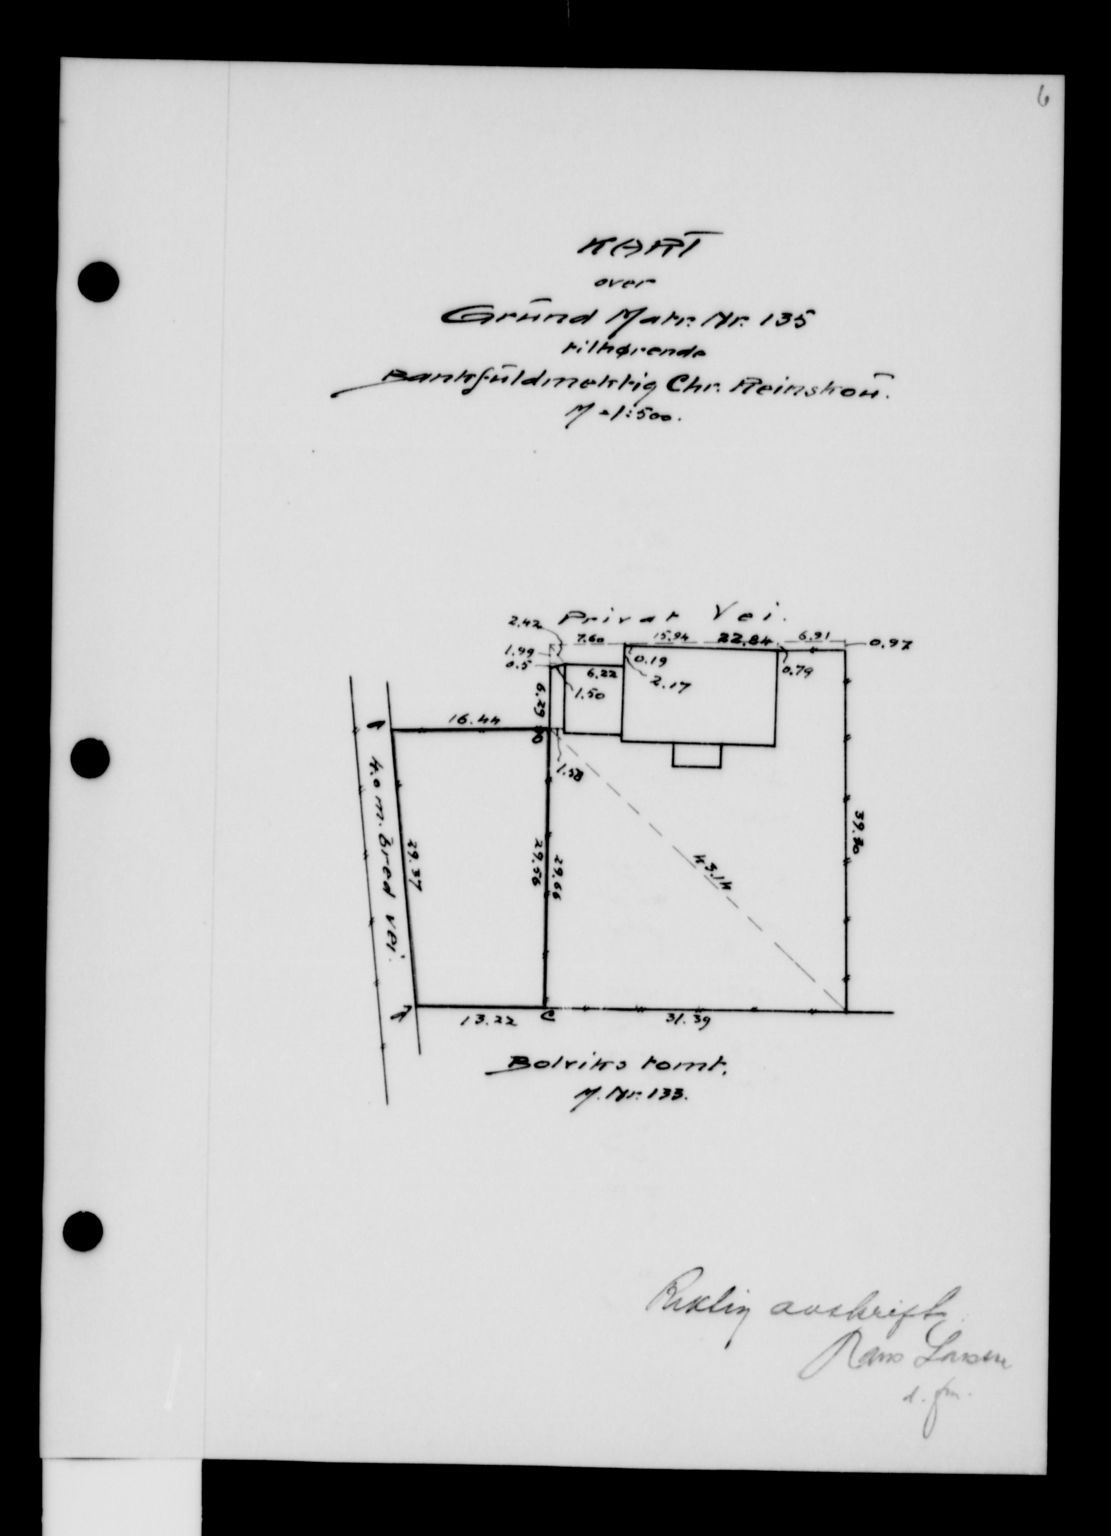 6
KART
over
Grund Matr. Nr. 135
tilhørende
Bankfuldmektig Chr. Reinskou.
M = 1:500.
Privat Vei.
2.42
7.60
15.94
22.84
6.91
0.97
1.99
0.5
6.22
0.19
0.79
6.29
1.50
2.17
16.44
a
D
1.58
4.0 m. bred vei.
29.37
29.56
29.66
43.14
39.80
b
13.22
C
31.39
Bolviks tomt.
M. Nr. 133.
Riktig avskrift
Hans Larsen
d. fm.